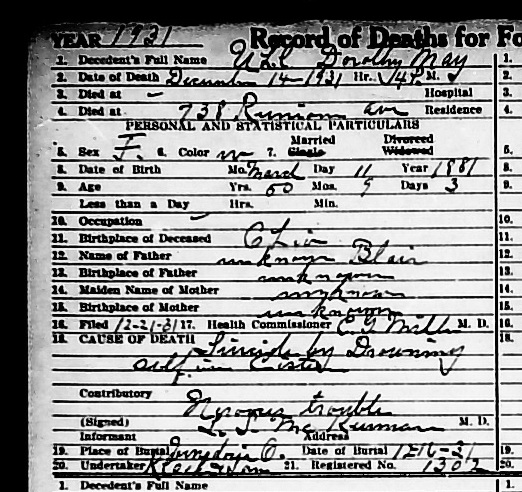 YEAR 1931 Record of Deaths for Fo
1. Decedent's Full Name Dorothy May 1.
2. Date of Death December 14-1931 Hr. M. 2.
3. Died at Hospital 3.
4. Died at 738 ave Residence 4.
PERSONAL AND STATISTICAL PARTICULARS
Married Divorced
5. Sex F. 6. Color w 7. Single Widowed 5.
8. Date of Birth Mo. March Day 11 Year 1881 8.
9. Age Yrs. 50 Mos. 9 Days 3 9.
Less than a Day Hrs. Min.
10. Occupation 10.
11. Birthplace of Deceased Ohio 11.
12. Name of Father unknown Blair 12.
13. Birthplace of Father unknown 13.
14. Maiden Name of Mother unknown 14.
15. Birthplace of Mother unknown 15.
16. Filed 12-21-31 17. Health Commissioner M. D. 16.
18. CAUSE OF DEATH Suicide by Drowning 18.
self in Cistern
Contributory
Nervous trouble
(Signed) M. D.
Informant Address
19. Place of Burial O. Date of Burial 12-16-31 19.
20. Undertaker 21. Registered No. 1302 20.
1. Decedent's Full Name 1.